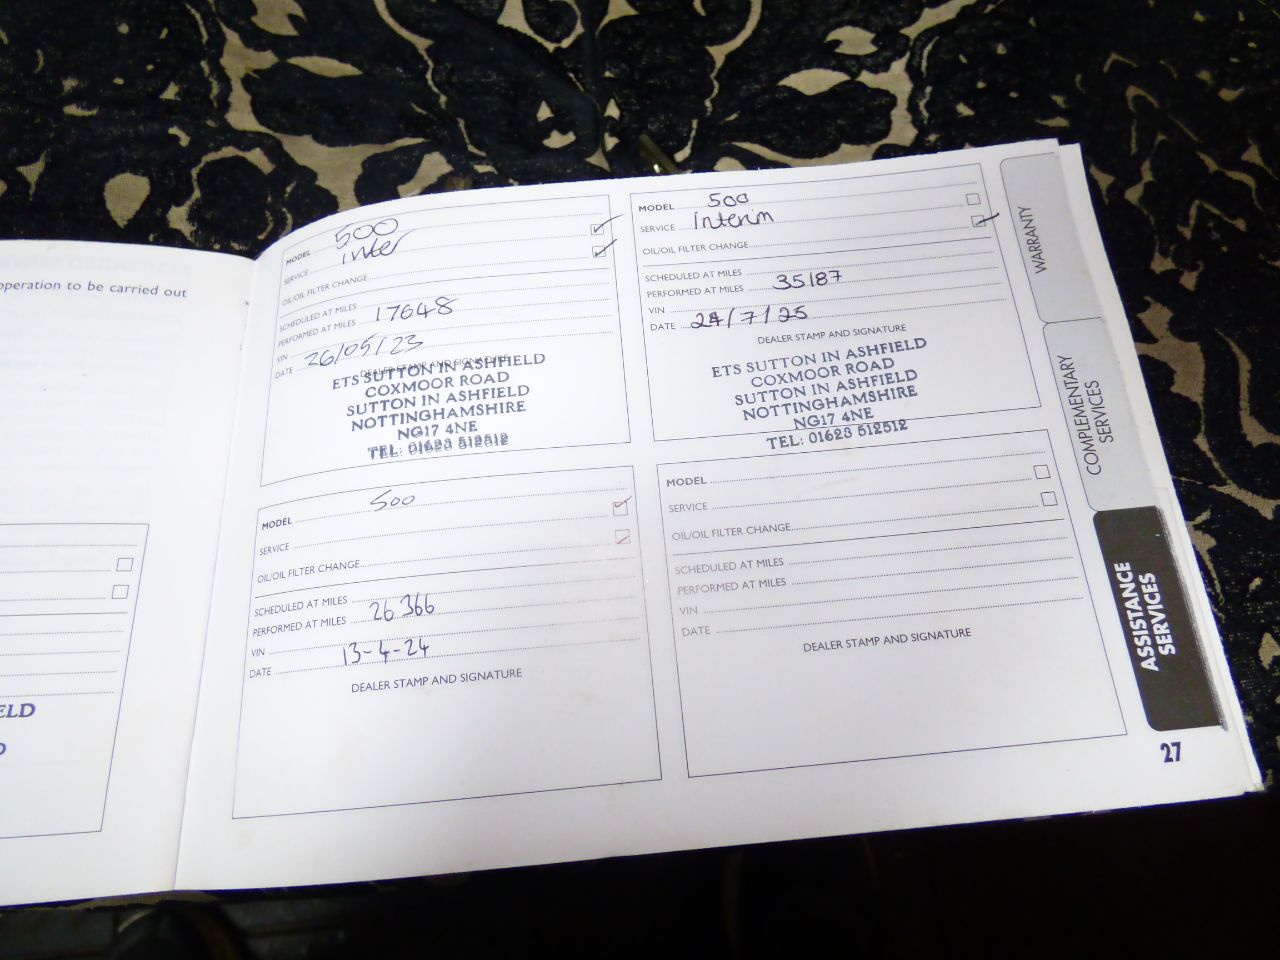 operation to be carried out
ELD
MODEL 500
SERVICE Inter
OIL/OIL FILTER CHANGE
SCHEDULED AT MILES
PERFORMED AT MILES 17648
VIN
DATE 26/05/23
DEALER STAMP AND SIGNATURE
ETS SUTTON IN ASHFIELD
COXMOOR ROAD
SUTTON IN ASHFIELD
NOTTINGHAMSHIRE
NG17 4NE
TEL: 01623 512512
MODEL 500
SERVICE Interim
OIL/OIL FILTER CHANGE
SCHEDULED AT MILES
PERFORMED AT MILES 35187
VIN
DATE 24/7/25
DEALER STAMP AND SIGNATURE
ETS SUTTON IN ASHFIELD
COXMOOR ROAD
SUTTON IN ASHFIELD
NOTTINGHAMSHIRE
NG17 4NE
TEL: 01623 512512
MODEL 500
SERVICE
OIL/OIL FILTER CHANGE
SCHEDULED AT MILES
PERFORMED AT MILES 26366
VIN
DATE 13-4-24
DEALER STAMP AND SIGNATURE
MODEL
SERVICE
OIL/OIL FILTER CHANGE
SCHEDULED AT MILES
PERFORMED AT MILES
VIN
DATE
DEALER STAMP AND SIGNATURE
WARRANTY
COMPLEMENTARY
SERVICES
ASSISTANCE
SERVICES
27